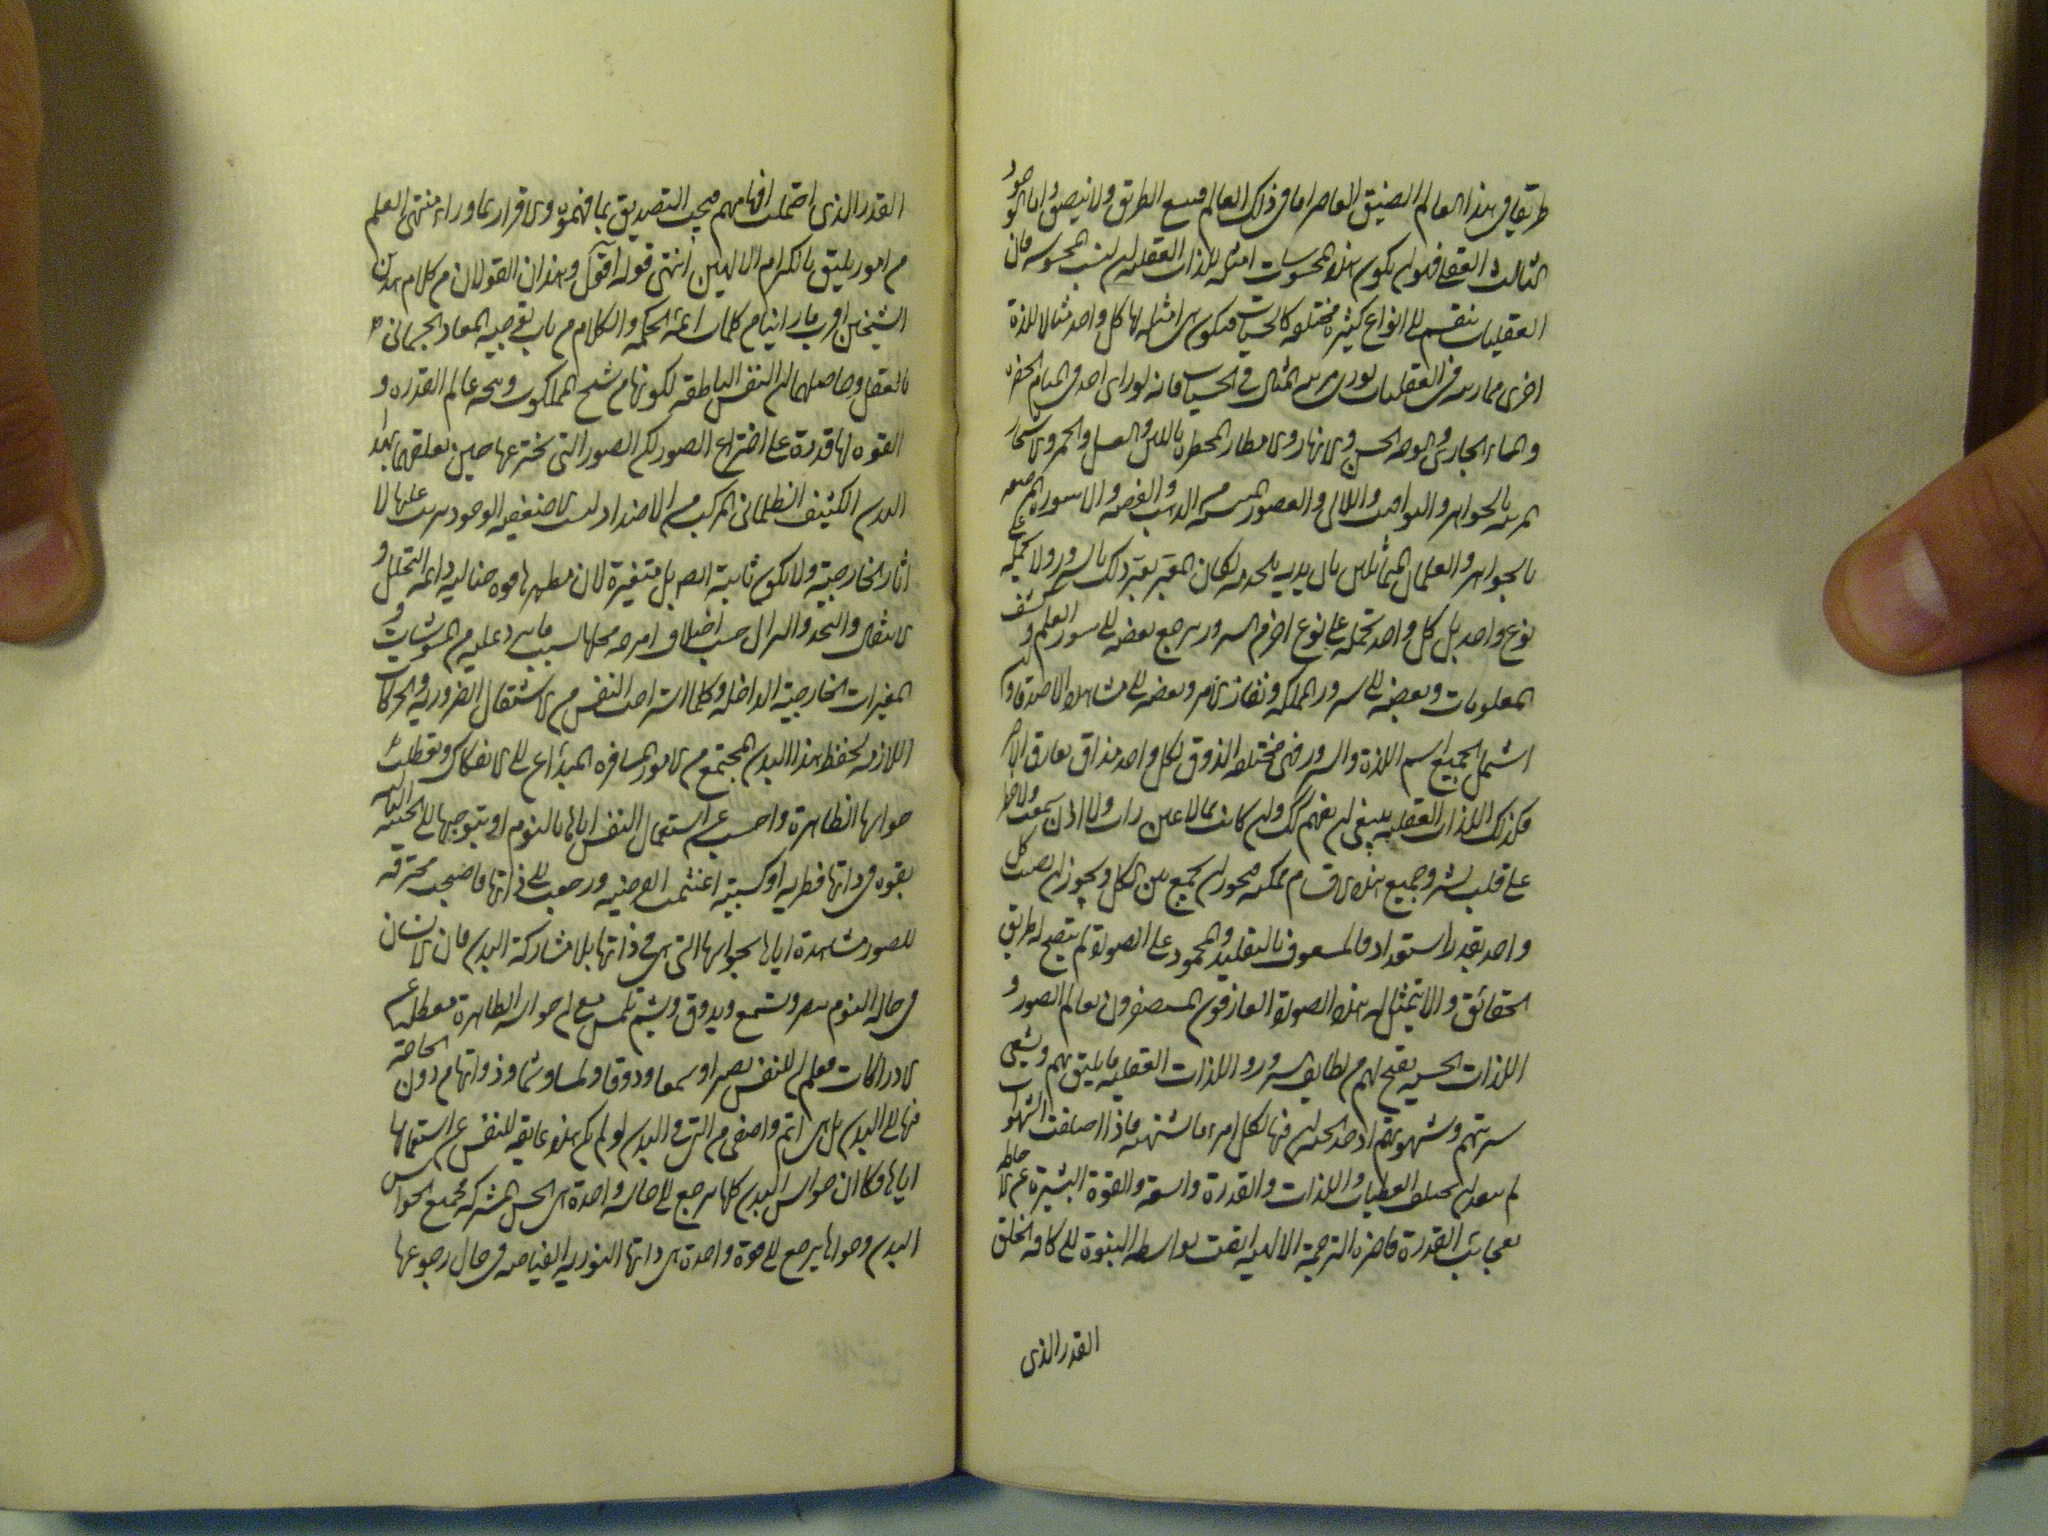 طريقا في هذا العالم الضيق القاصر اما في ذلك العالم فيسع الطريق ولا يضيق واما الوجود
الثالث العقلي فهو ان يكون هذه المحسوسات امثلة للذات العقلية التي ليست بمحسوسة فان
العقليات ينقسم الى انواع كثيرة مختلفة كالحسيات فيكون هي امثلة لها كل واحد مثالا للذة
اخرى مما رتبته في العقليات توازي رتبة المثال في الحسيات فانه لو راى احد في المنام الخضرة
والماء الجاري والوجه الحسن والانهار والامطار المطردة باللبن والعسل والخمر والاشجار
المزينة بالجواهر واليواقيت واللالي والقصور المبنية من الذهب والفضة والاسورة المرصعة
بالجواهر والغلمان المتماثلين بين يديه للخدمة لكان المعبر يعبر ذلك بالسرور ولا يحمله على
نوع واحد بل كل واحد يحمله على نوع اخر من السرور يرجع بعضه الى سرور العلم وكشف
المعلومات وبعضه الى سرور المملكة ونفاذ الامر وبعضه الى مشاهدة الاصدقاء وان
اشتمل الجميع اسم اللذة والسرور فهي مختلفة الذوق لكل واحد مذاق يفارق الاخر
فكذلك اللذات العقلية ينبغي ان يفهم كك وان كانت مما لا عين رات ولا اذن سمعت ولا خطر
على قلب بشر وجميع هذه الاقسام ممكنة فيجوز ان يجمع بين الكل ويجوز ان يصيب كل
واحد بقدر استعداده فالمشعوف بالتقليد والمجمود على الصورة لم ينفتح له طريق
الحقائق والا يتمثل له هذه الصورة والعارفون المستصغرون لعالم الصور و
اللذات الحسية يفتح لهم من لطايف السرور واللذات العقلية ما يليق بهم ويشفي
شرههم وشهوتهم اذ حد الجنة ان فيها لكل امرء ما يشتهيه فاذا اختلفت الشهوات
لم يبعد ان يختلف العطيات واللذات والقدرة واسعة والقوة البشرية عن الاحاطة
بعجايب القدرة قاصرة والرحمة الالهية القت بواسطة النبوة الى كافة الخلق
القدر الذي
القدر الذي احتملت افهامهم فيجب التصديق بما فهموه والاقرار بما وراء منتهى العلم
من امور يليق بالكرم الالهي انتهى قوله اقول وهذان القولان من كلام هذين
الشيخين اقرب ما راينا من كلمات ائمة الحكمة والكلام من باب توجيه المعاد الجسماني
بالعقل وحاصلهما ان النفس الناطقة لكونها من سنخ الملكوت وسحه عالم القدرة و
القوة لها قدرة على اختراع الصور لكن الصور التي تخترعها حين تعلقها بهذا
البدن الكثيف الظلماني المركب من الاضداد ليست الا ضعيفة الوجود يترتب عليها لا
اثار الخارجية ولا يكون ثابتة ايضا بل متغيرة لان مظهرها قوة خيالية دائمة التحلل و
الانتقال والتجدد والزوال حسب اختلاف امزجة محلها بسبب ما يرد عليه من المشوشات و
المغيرات الخارجية الداخلة وكلما استراحت النفس من الاشتغال الضرورية والحركات
اللازمة لحفظ هذا البدن المجتمع من الامور المتنافرة المتداعي الى الانفكاك وتعطلت
حواسها الظاهرة واحتبست عن استعمال النفس اياها بالنوم او بتوجهها الى الجنبة العالية
بقوة في ذاتها فطرية او كسبية اغتنمت الفرصة ورجعت الى ذاتها فاصبحت مخترعة
للصور مشاهدة اياها بحواسها التي هي في ذاتها بلا مشاركة البدن فان الانسان
في حالة النوم يبصر ويسمع ويذوق ويشم ويلمس مع ان حواسه الظاهرة معطلة عن
الادراكات فعلم ان للنفس بصرا وسمعا وذوقا ولمسا وشما في ذواتها من دون الحاجة
فيها الى البدن بل هي اتم واصفى من التي في البدن لو لم يكن هذه عايقة للنفس عن استعمالها
اياها وكما ان حواس البدن كلها يرجع الى حاسة واحدة هي الحس المشترك فجميع الحواس
البدن وحواسها يرجع الى قوة واحدة هي ذاتها النورية الفياضة وفي حال رجوعها